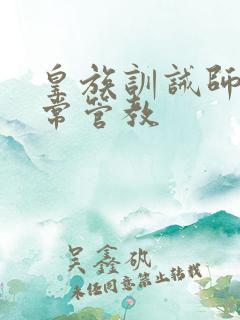 皇族訓誡師日
常管教
吴鑫矾
未经同意禁止转载